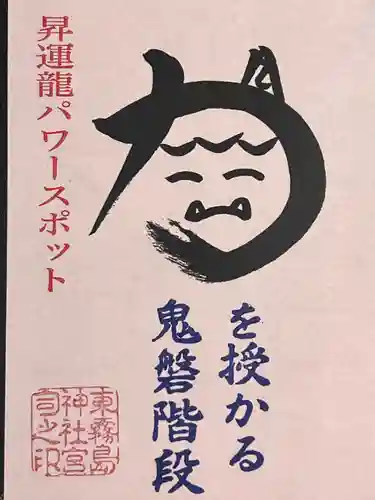 昇運龍パワースポット
力
を授かる
鬼磐階段
東霧島
神社宮
司之印